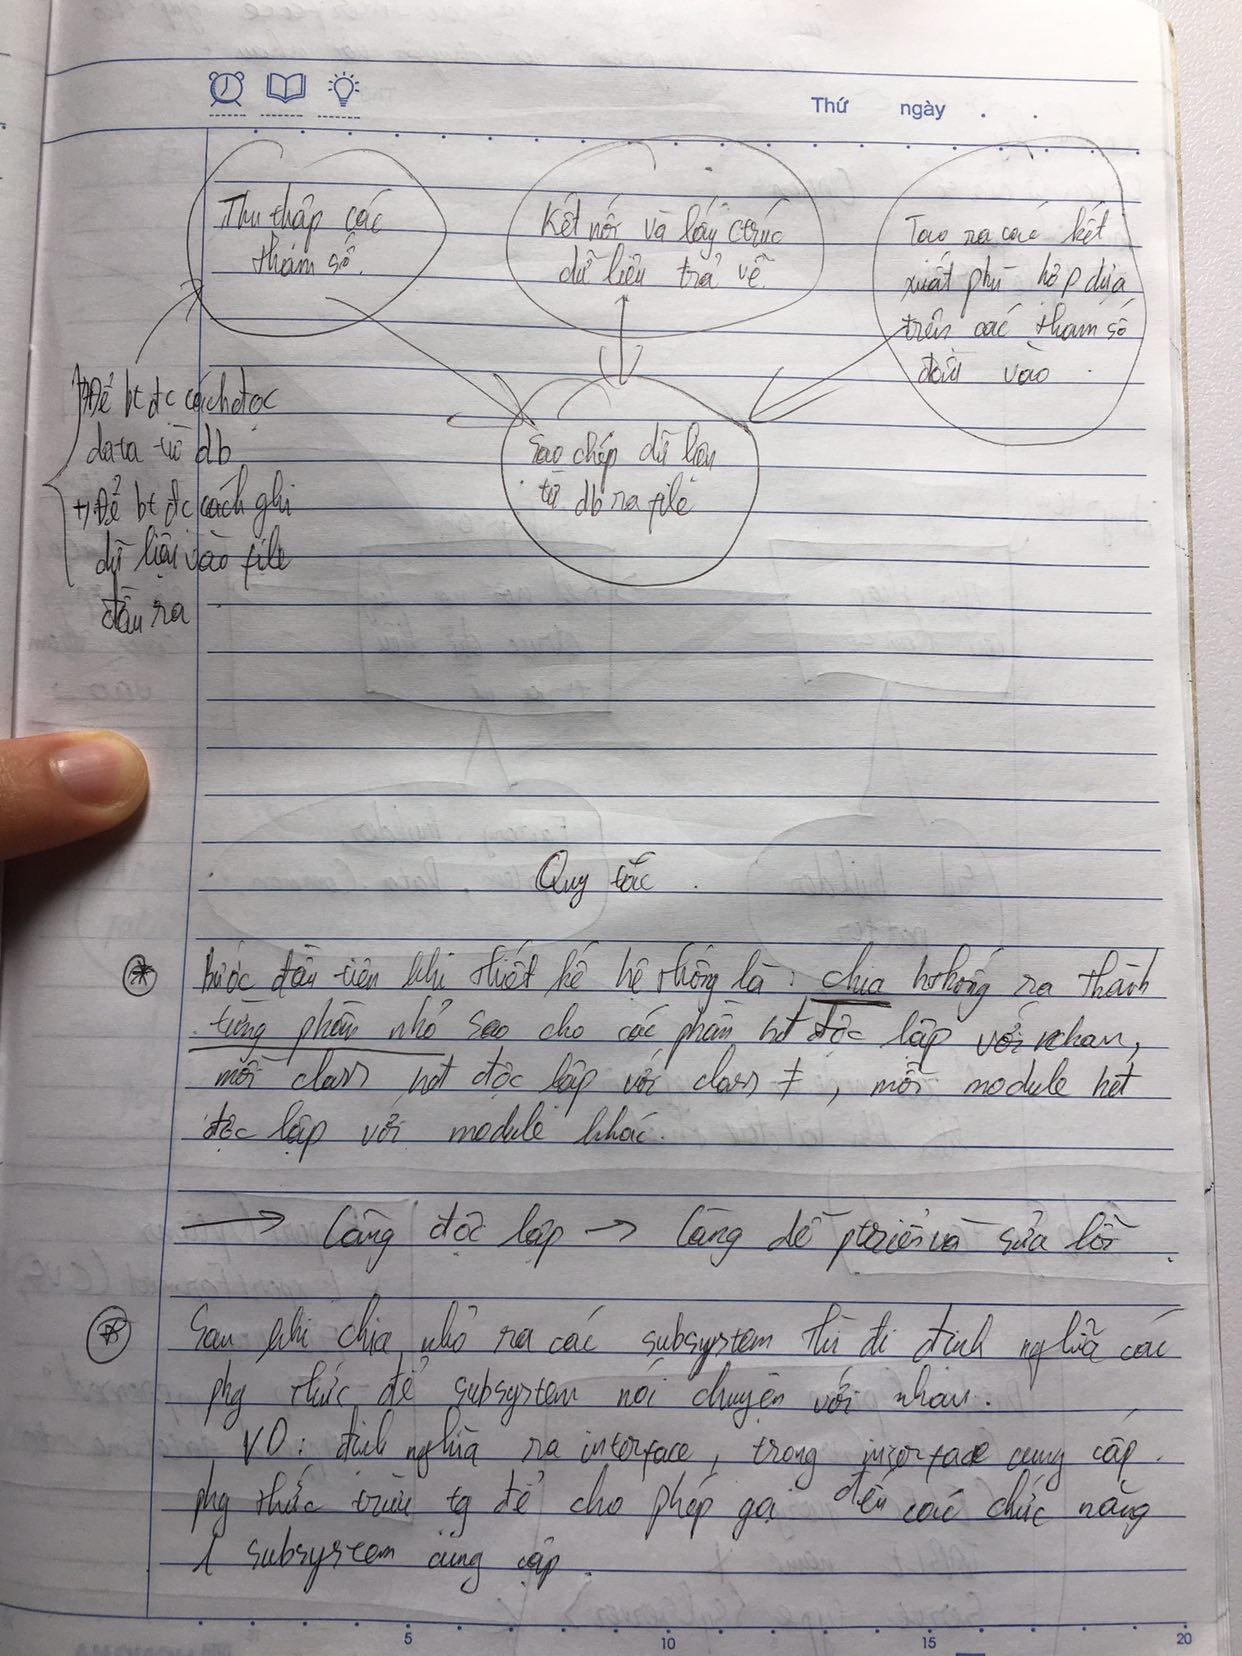 Thứ ngày
Thu thập các
tham số.
Kết nối và lấy ctrúc
dữ liệu trả về
Tạo ra các kết
xuất phù hợp dựa
trên các tham số
đầu vào.
+) Để bt đc cách đọc
data từ db
+) Để bt đc cách ghi
dữ liệu vào file
đầu ra
Sao chép dữ liệu
từ db ra file
Quy tắc.
Bước đầu tiên khi thiết kế hệ thống là: chia hthống ra thành
từng phần nhỏ sao cho các phần hđ độc lập với nhau,
mỗi class hđ độc lập với class ≠, mỗi module hđ
độc lập với module khác.
→ Càng độc lập → Càng dễ ptriển và sửa lỗi.
Sau khi chia nhỏ ra các subsystem thì đi định nghĩa các
phg thức để subsystem nói chuyện với nhau.
VD: định nghĩa ra interface, trong interface cung cấp
phg thức trừu tg để cho phép gọi đến các chức năng
1 subsystem cung cấp.
5 10 15 20